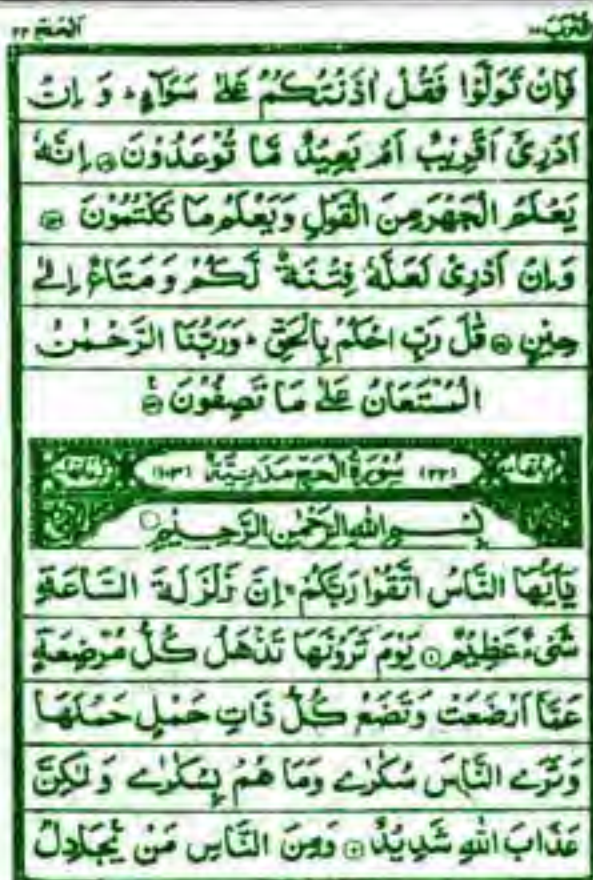 الحج ٢٢
فَاِنْ تَوَلَّوْا فَقُلْ اٰذَنْتُكُمْ عَلٰى سَوَآءٍ ؕ وَ اِنْ
اَدْرِىْۤ اَقَرِيْبٌ اَمْ بَعِيْدٌ مَّا تُوْعَدُوْنَ ۝ اِنَّهٗ
يَعْلَمُ الْجَهْرَ مِنَ الْقَوْلِ وَيَعْلَمُ مَا تَكْتُمُوْنَ ۝
وَاِنْ اَدْرِىْ لَعَلَّهٗ فِتْنَةٌ لَّكُمْ وَمَتَاعٌ اِلٰى
حِيْنٍ ۝ قٰلَ رَبِّ احْكُمْ بِالْحَقِّ ؕ وَرَبُّنَا الرَّحْمٰنُ
الْمُسْتَعَانُ عَلٰى مَا تَصِفُوْنَ ۝
(٢٢) سُوْرَةُ الْحَجِّ مَدَنِيَّةٌ (١٠٣)
بِسْمِ اللّٰهِ الرَّحْمٰنِ الرَّحِيْمِ
يٰۤاَيُّهَا النَّاسُ اتَّقُوْا رَبَّكُمْ ۚ اِنَّ زَلْزَلَةَ السَّاعَةِ
شَىْءٌ عَظِيْمٌ ۝ يَوْمَ تَرَوْنَهَا تَذْهَلُ كُلُّ مُرْضِعَةٍ
عَمَّاۤ اَرْضَعَتْ وَتَضَعُ كُلُّ ذَاتِ حَمْلٍ حَمْلَهَا
وَتَرَى النَّاسَ سُكٰرٰى وَمَا هُمْ بِسُكٰرٰى وَلٰكِنَّ
عَذَابَ اللّٰهِ شَدِيْدٌ ۝ وَمِنَ النَّاسِ مَنْ يُّجَادِلُ